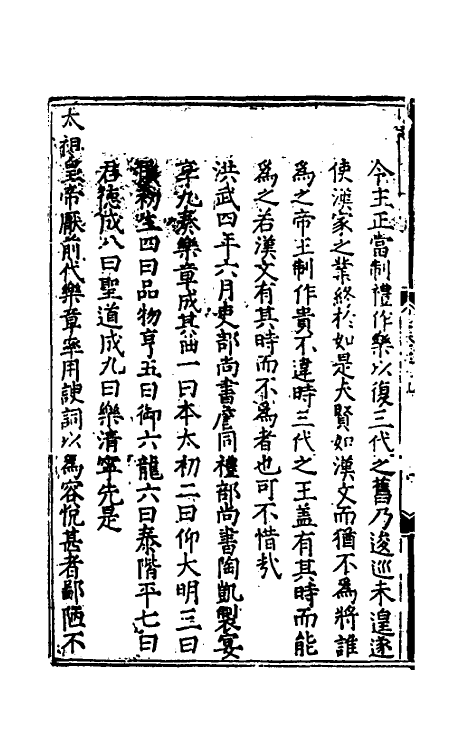 令主正當制禮作樂以復三代之舊乃逡巡未遑遂
使漢家之業終於如是夫賢如漢文而猶不爲將誰
爲之帝王制作貴不違時三代之王蓋有其時而能
爲之若漢文有其時而不爲者也可不惜哉
洪武四年六月吏部尚書詹同禮部尚書陶凱製宴
享九奏樂章成其曲一曰本太初二曰仰大明三曰
初生四曰品物亨五曰御六龍六曰泰階平七曰
君德成八曰聖道成九曰樂清寧先是
太祖皇帝厭前代樂章率用諛詞以爲容悅甚者鄙陋不